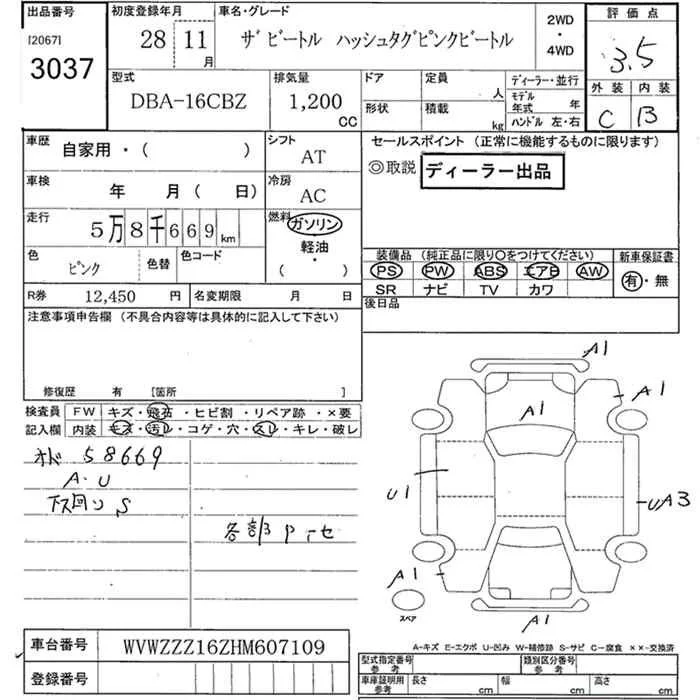 出品番号 初度登録年月 車名・グレード 2WD ・ 4WD 評価点
[2067]
3037 28 11月 ザ ビートル ハッシュタグピンクビートル 3.5
型式 排気量 ドア 定員 人 ディーラー・並行 外装 内装
DBA-16CBZ 1,200 CC 形状 積載 kg モデル年式 年 C B
ハンドル 左・右
車歴 自家用・( ) シフト AT セールスポイント (正常に機能するものに限ります)
◎取説 ディーラー出品
車検 年 月 ( 日) 冷房 AC
走行 5万8千669km 燃料 ガソリン
軽油
・
( )
色 ピンク 色替 色コード 装備品 (純正品に限り〇をつけてください) 新車保証書
PS PW ABS エアB AW 有・無
SR ナビ TV カワ
R券 12,450 円 名変期限 月 日 後日品
注意事項申告欄 (不具合内容等は具体的に記入して下さい)
修復歴 有 [箇所 ]
検査員 FW キズ・飛石・ヒビ割・リペア跡・×要
記入欄 内装 キズ・汚レ・コゲ・穴・スレ・キレ・破レ
オド 58669
A・U
下ス回リ S
各部 P
A1
A1
A1
U1
UA3
A1
A1
スペア
車台番号 WVWZZZ16ZHM607109
登録番号
A-キズ E-エクボ U-凹み W-補修跡 S-サビ C-腐食 ××-交換済
型式指定番号 参考 類別区分番号 参考
車庫証明用 参考 長さ cm 幅 cm 高さ cm